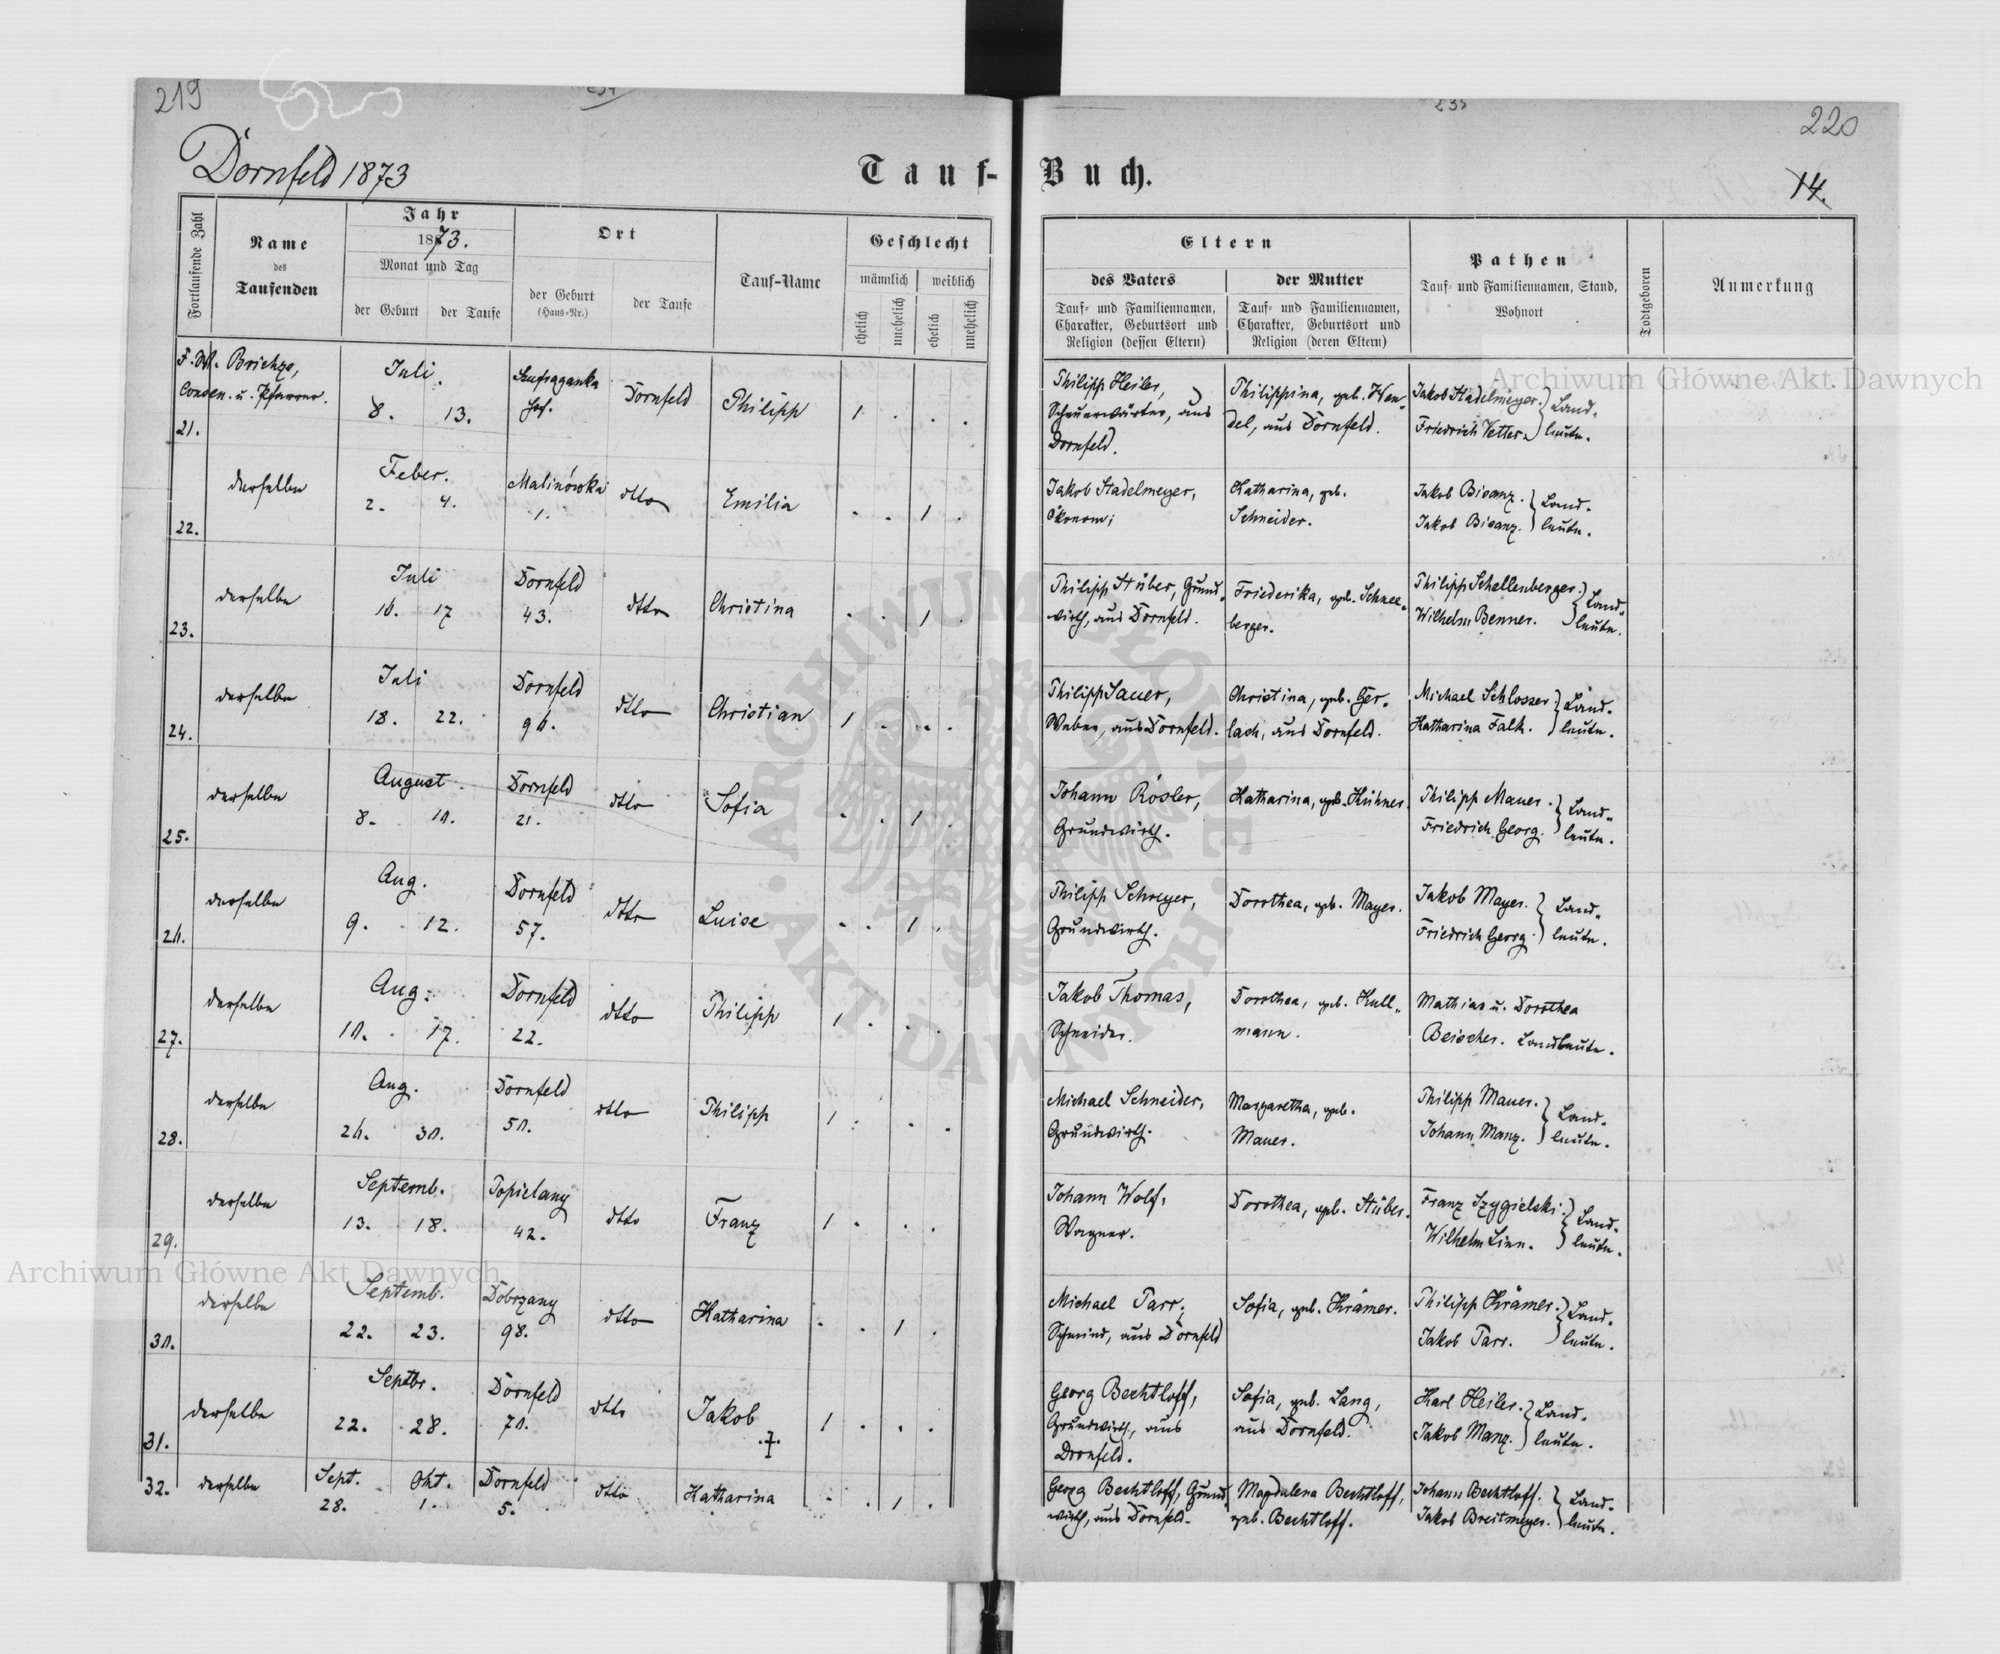 219
220
Dornfeld 1873
Tauf-Buch.
14.
Fortlaufende Zahl
Name
des
Taufenden
Jahr
1873.
Monat und Tag
der Geburt
der Taufe
Ort
der Geburt
(Haus-Nr.)
der Taufe
Tauf-Name
Geschlecht
männlich
weiblich
ehelich
unehelich
ehelich
unehelich
Eltern
des Vaters
Tauf- und Familiennamen,
Charakter, Geburtsort und
Religion (dessen Eltern)
der Mutter
Tauf- und Familiennamen,
Charakter, Geburtsort und
Religion (deren Eltern)
Pathen
Tauf- und Familiennamen, Stand,
Wohnort
Todtgeboren
Anmerkung
21.
Juli.
8. 13.
Dornfeld
Philipp
1 . . .
Philipp Heiler,
aus
Dornfeld.
Philippina, geb. Wen-
del, aus Dornfeld.
Jakob Stadelmeyer.
Friedrich Vetter.
Land-
leute.
22.
derselbe
Feber.
2. 4.
Malinówka
1.
dtto
Emilia
. . 1 .
Jakob Stadelmeyer,
Ökonom;
Katharina, geb.
Schneider.
Jakob Bisanz.
Jakob Bisanz.
Land-
leute.
23.
derselbe
Juli
16. 17
Dornfeld
43.
dtto
Christina
. . 1 .
Philipp Stüber, Grund-
wirth, aus Dornfeld.
Friederika, geb. Schnee-
berger.
Philipp Schellenberger.
Wilhelm Benner.
Land-
leute.
24.
derselbe
Juli
18. 22.
Dornfeld
96.
dtto
Christian
1 . . .
Philipp Sauer,
Weber, aus Dornfeld.
Christina, geb. Ger-
lach, aus Dornfeld.
Michael Schlosser.
Katharina Falk.
Land-
leute.
25.
derselbe
August.
8. 10.
Dornfeld
21.
dtto
Sofia
. . 1 .
Johann Rösler,
Grundwirth.
Katharina, geb. Kühner.
Philipp Mauer.
Friedrich Georg.
Land-
leute.
26.
derselbe
Aug.
9. 12.
Dornfeld
57.
dtto
Luise
. . 1 .
Philipp Schreyer,
Grundwirth.
Dorothea, geb. Mayer.
Jakob Mayer.
Friedrich Georg.
Land-
leute.
27.
derselbe
Aug.
10. 17.
Dornfeld
22.
dtto
Philipp
1 . . .
Jakob Thomas,
Schneider.
Dorothea, geb. Kull-
mann.
Mathias u. Dorothea
Beischer. Landleute.
28.
derselbe
Aug.
26. 30.
Dornfeld
50.
dtto
Philipp
1 . . .
Michael Schneider,
Grundwirth.
Margaretha, geb.
Mauer.
Philipp Mauer.
Johann Manz.
Land-
leute.
29.
derselbe
Septemb.
13. 18.
Popielany
42.
dtto
Franz
1 . . .
Johann Wolf,
Wagner.
Dorothea, geb. Stüber.
Franz Szygielski.
Wilhelm Linn.
Land-
leute.
30.
derselbe
Septemb.
22. 23.
Dobrzany
98.
dtto
Katharina
. . 1 .
Michael Parr,
Schmied, aus Dornfeld
Sofia, geb. Krämer.
Philipp Krämer.
Jakob Parr.
Land-
leute.
31.
derselbe
Septbr.
22. 28.
Dornfeld
70.
dtto
Jakob
1 . . .
Georg Bechtloff,
Grundwirth, aus
Dornfeld.
Sofia, geb. Lang,
aus Dornfeld.
Karl Heiler.
Jakob Manz.
Land-
leute.
32.
derselbe
Sept. Okt.
28. 1.
Dornfeld
5.
dtto
Katharina
. . 1 .
Georg Bechtloff, Grund-
wirth, aus Dornfeld.
Magdalena Bechtloff,
geb. Bechtloff.
Johann Bechtloff.
Jakob Breitmeyer.
Land-
leute.
Archiwum Główne Akt Dawnych
Archiwum Główne Akt Dawnych
ARCHIWUM GŁÓWNE AKT DAWNYCH